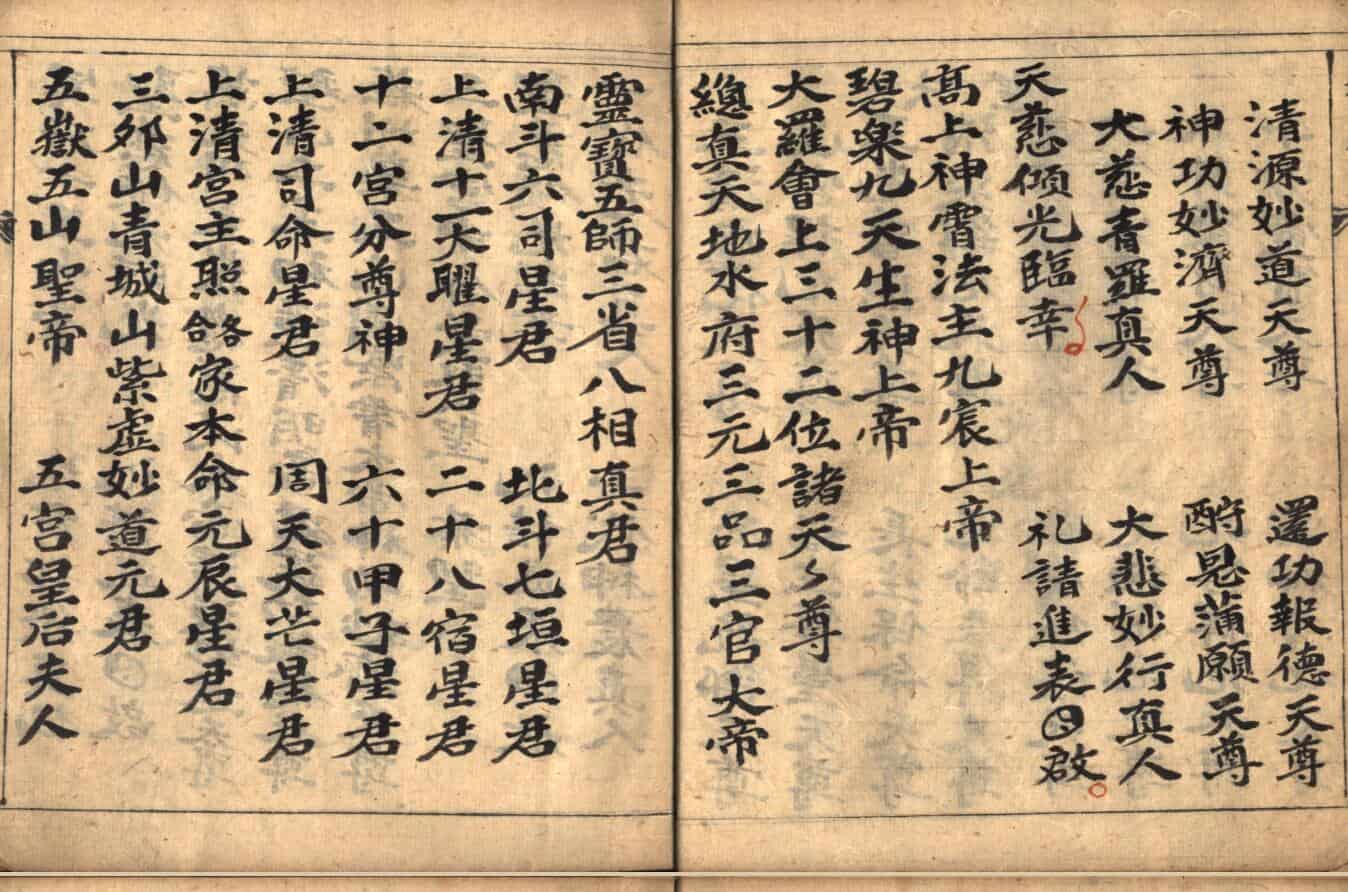 清源妙道天尊　還功報德天尊
神功妙濟天尊　酧恩蒲願天尊
大慈青羅真人　大悲妙行真人
天慈傾光臨幸　礼請進表啟
髙上神霄法主九宸上帝
碧楽九天生神上帝
大羅會上三十二位諸天〻尊
總真天地水府三元三品三官大帝
靈寳五師三省八相真君
南斗六司星君　北斗七垣星君
上清十一大曜星君　二十八宿星君
十二宮分尊神　六十甲子星君
上清司命星君　周天大芒星君
上清宮主照各合家本命元辰星君
三邜山青城山紫虛妙道元君
五嶽五山聖帝　五宮皇后夫人